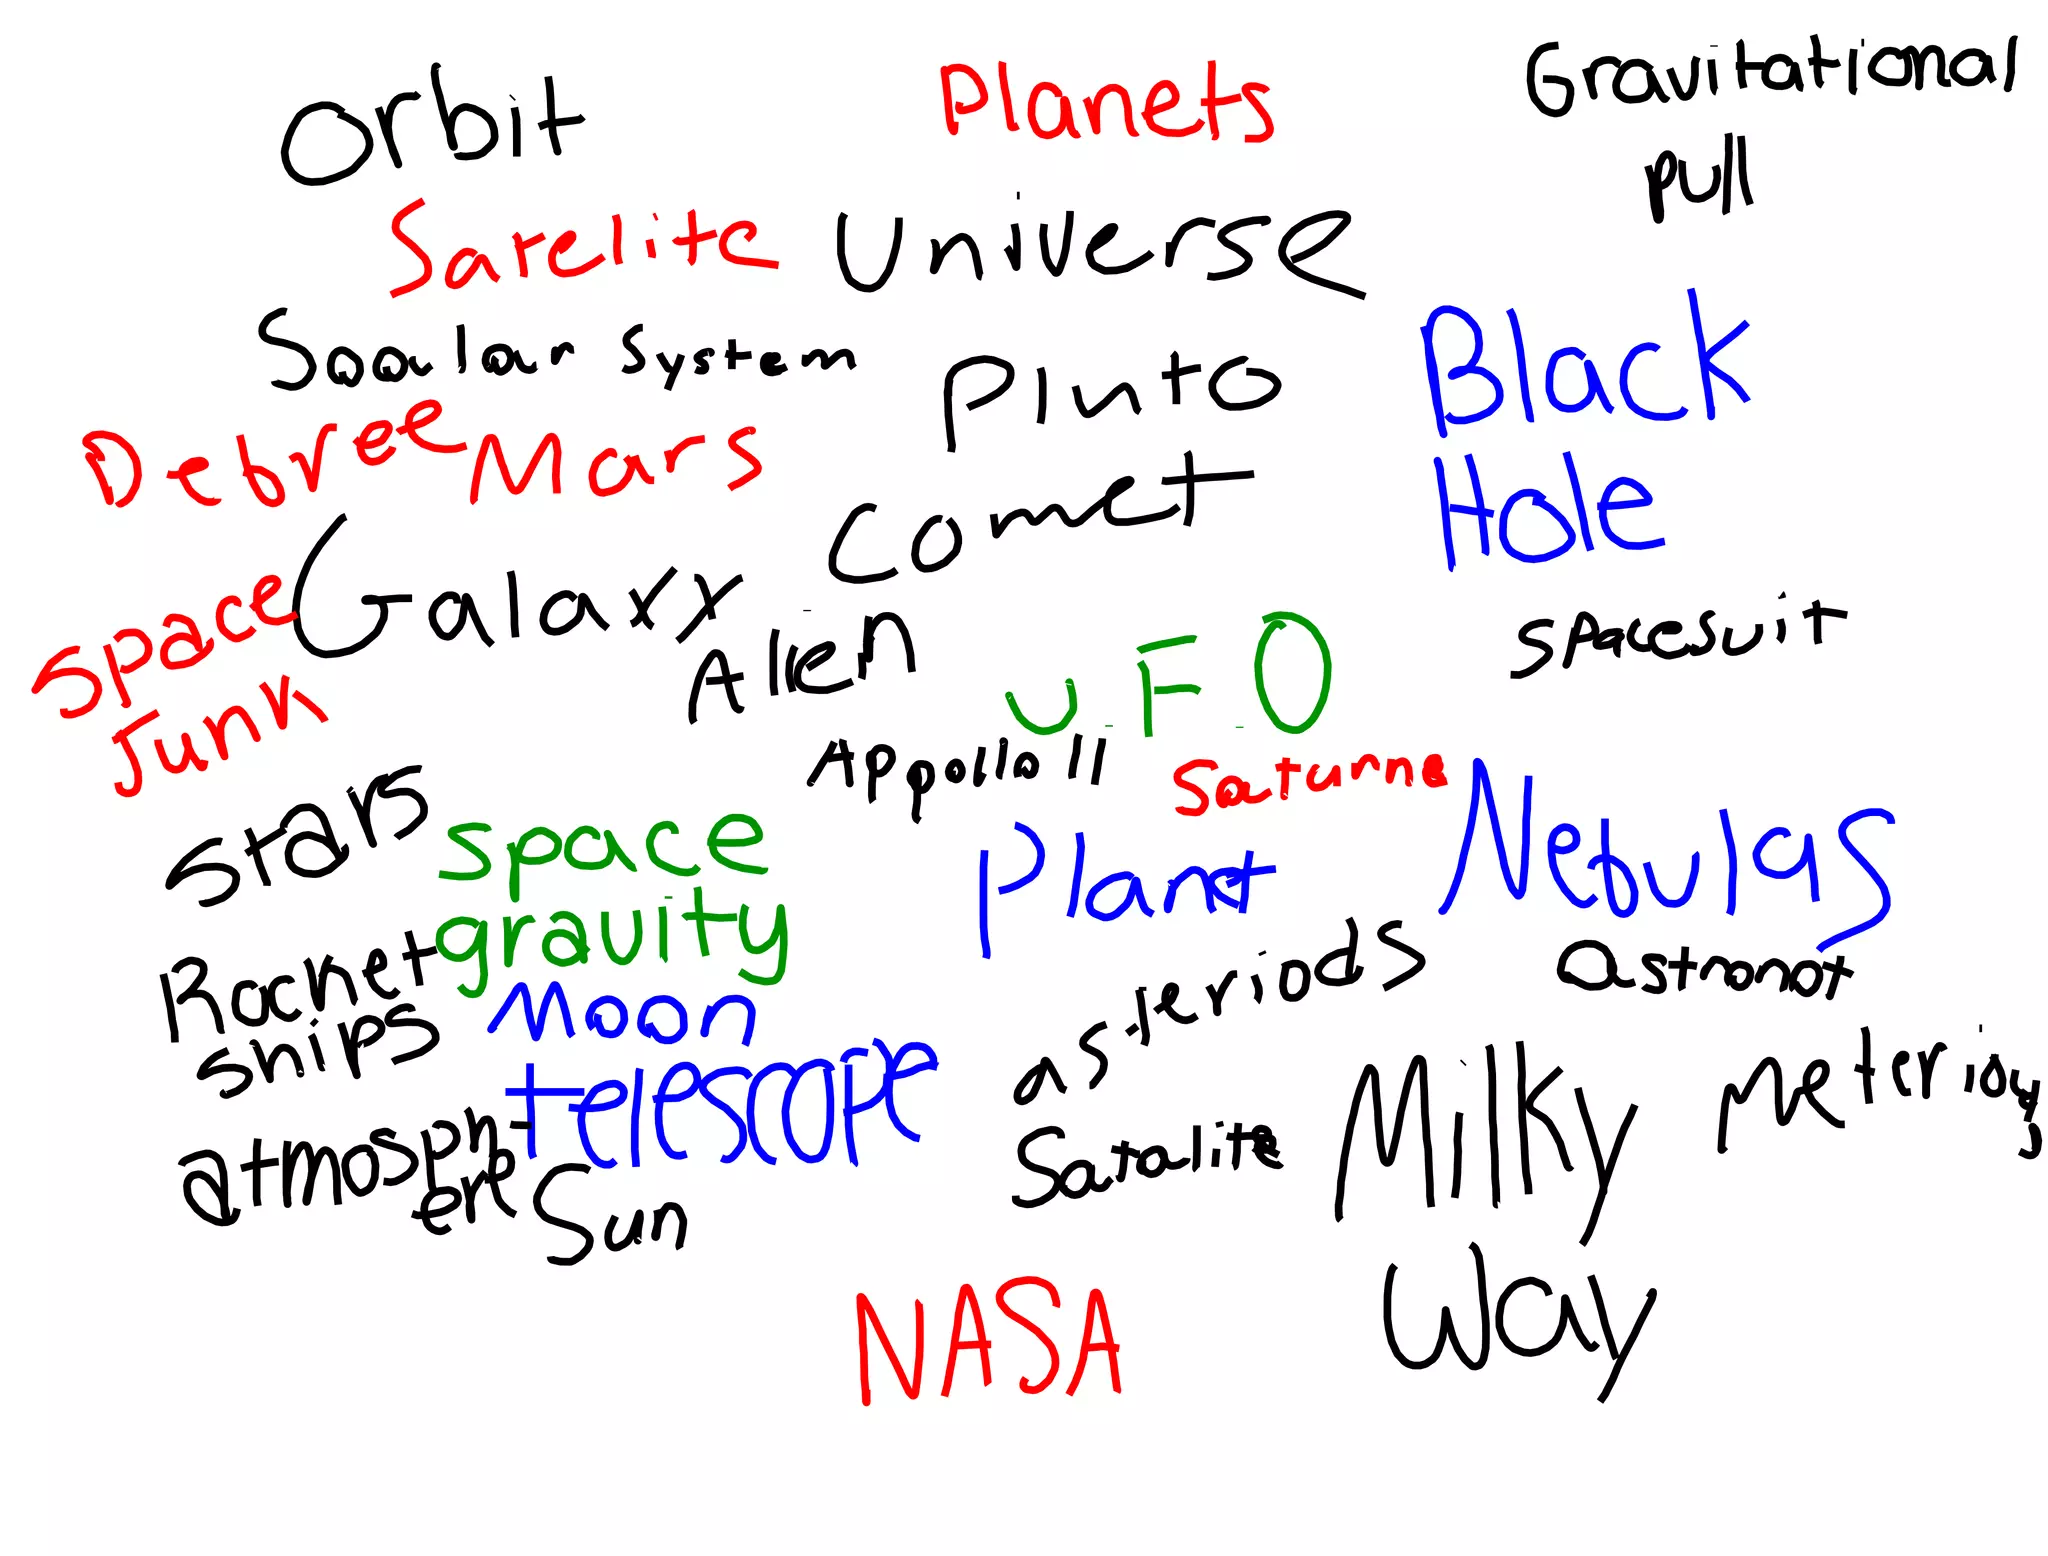 Orbit
Planets
Gravitational
pull
Satelite
Universe
Soalar System
Pluto
Black
Hole
Debree
Mars
Comet
Galaxy
Space
Junk
Alien
U.F.O
Spacesuit
Appollo 11
Saturne
Stars
Space
gravity
Planet
Nebulas
Rocket
ships
Moon
asteriods
astronot
telescope
atmosph-
ere
Sun
Satalite
Milky
Way
NASA